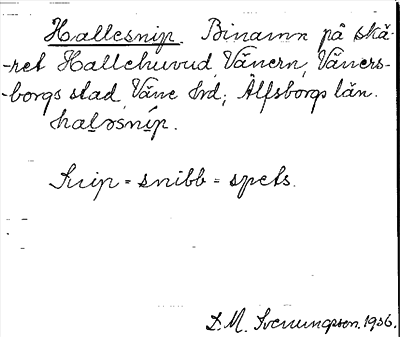 Hallesnip. Binamn på skä-
-ret Hallehuvud, Vänern, Väners-
-borgs stad, Väne hrd; Älfsborgs län.
haləsníp.
Snip = snibb = spets.
D. M. Svenungsson. 1936.